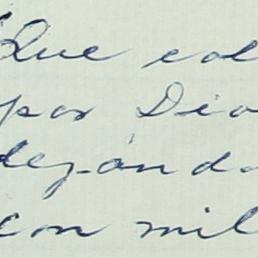 Que col
por Dio
dejándo
con mil